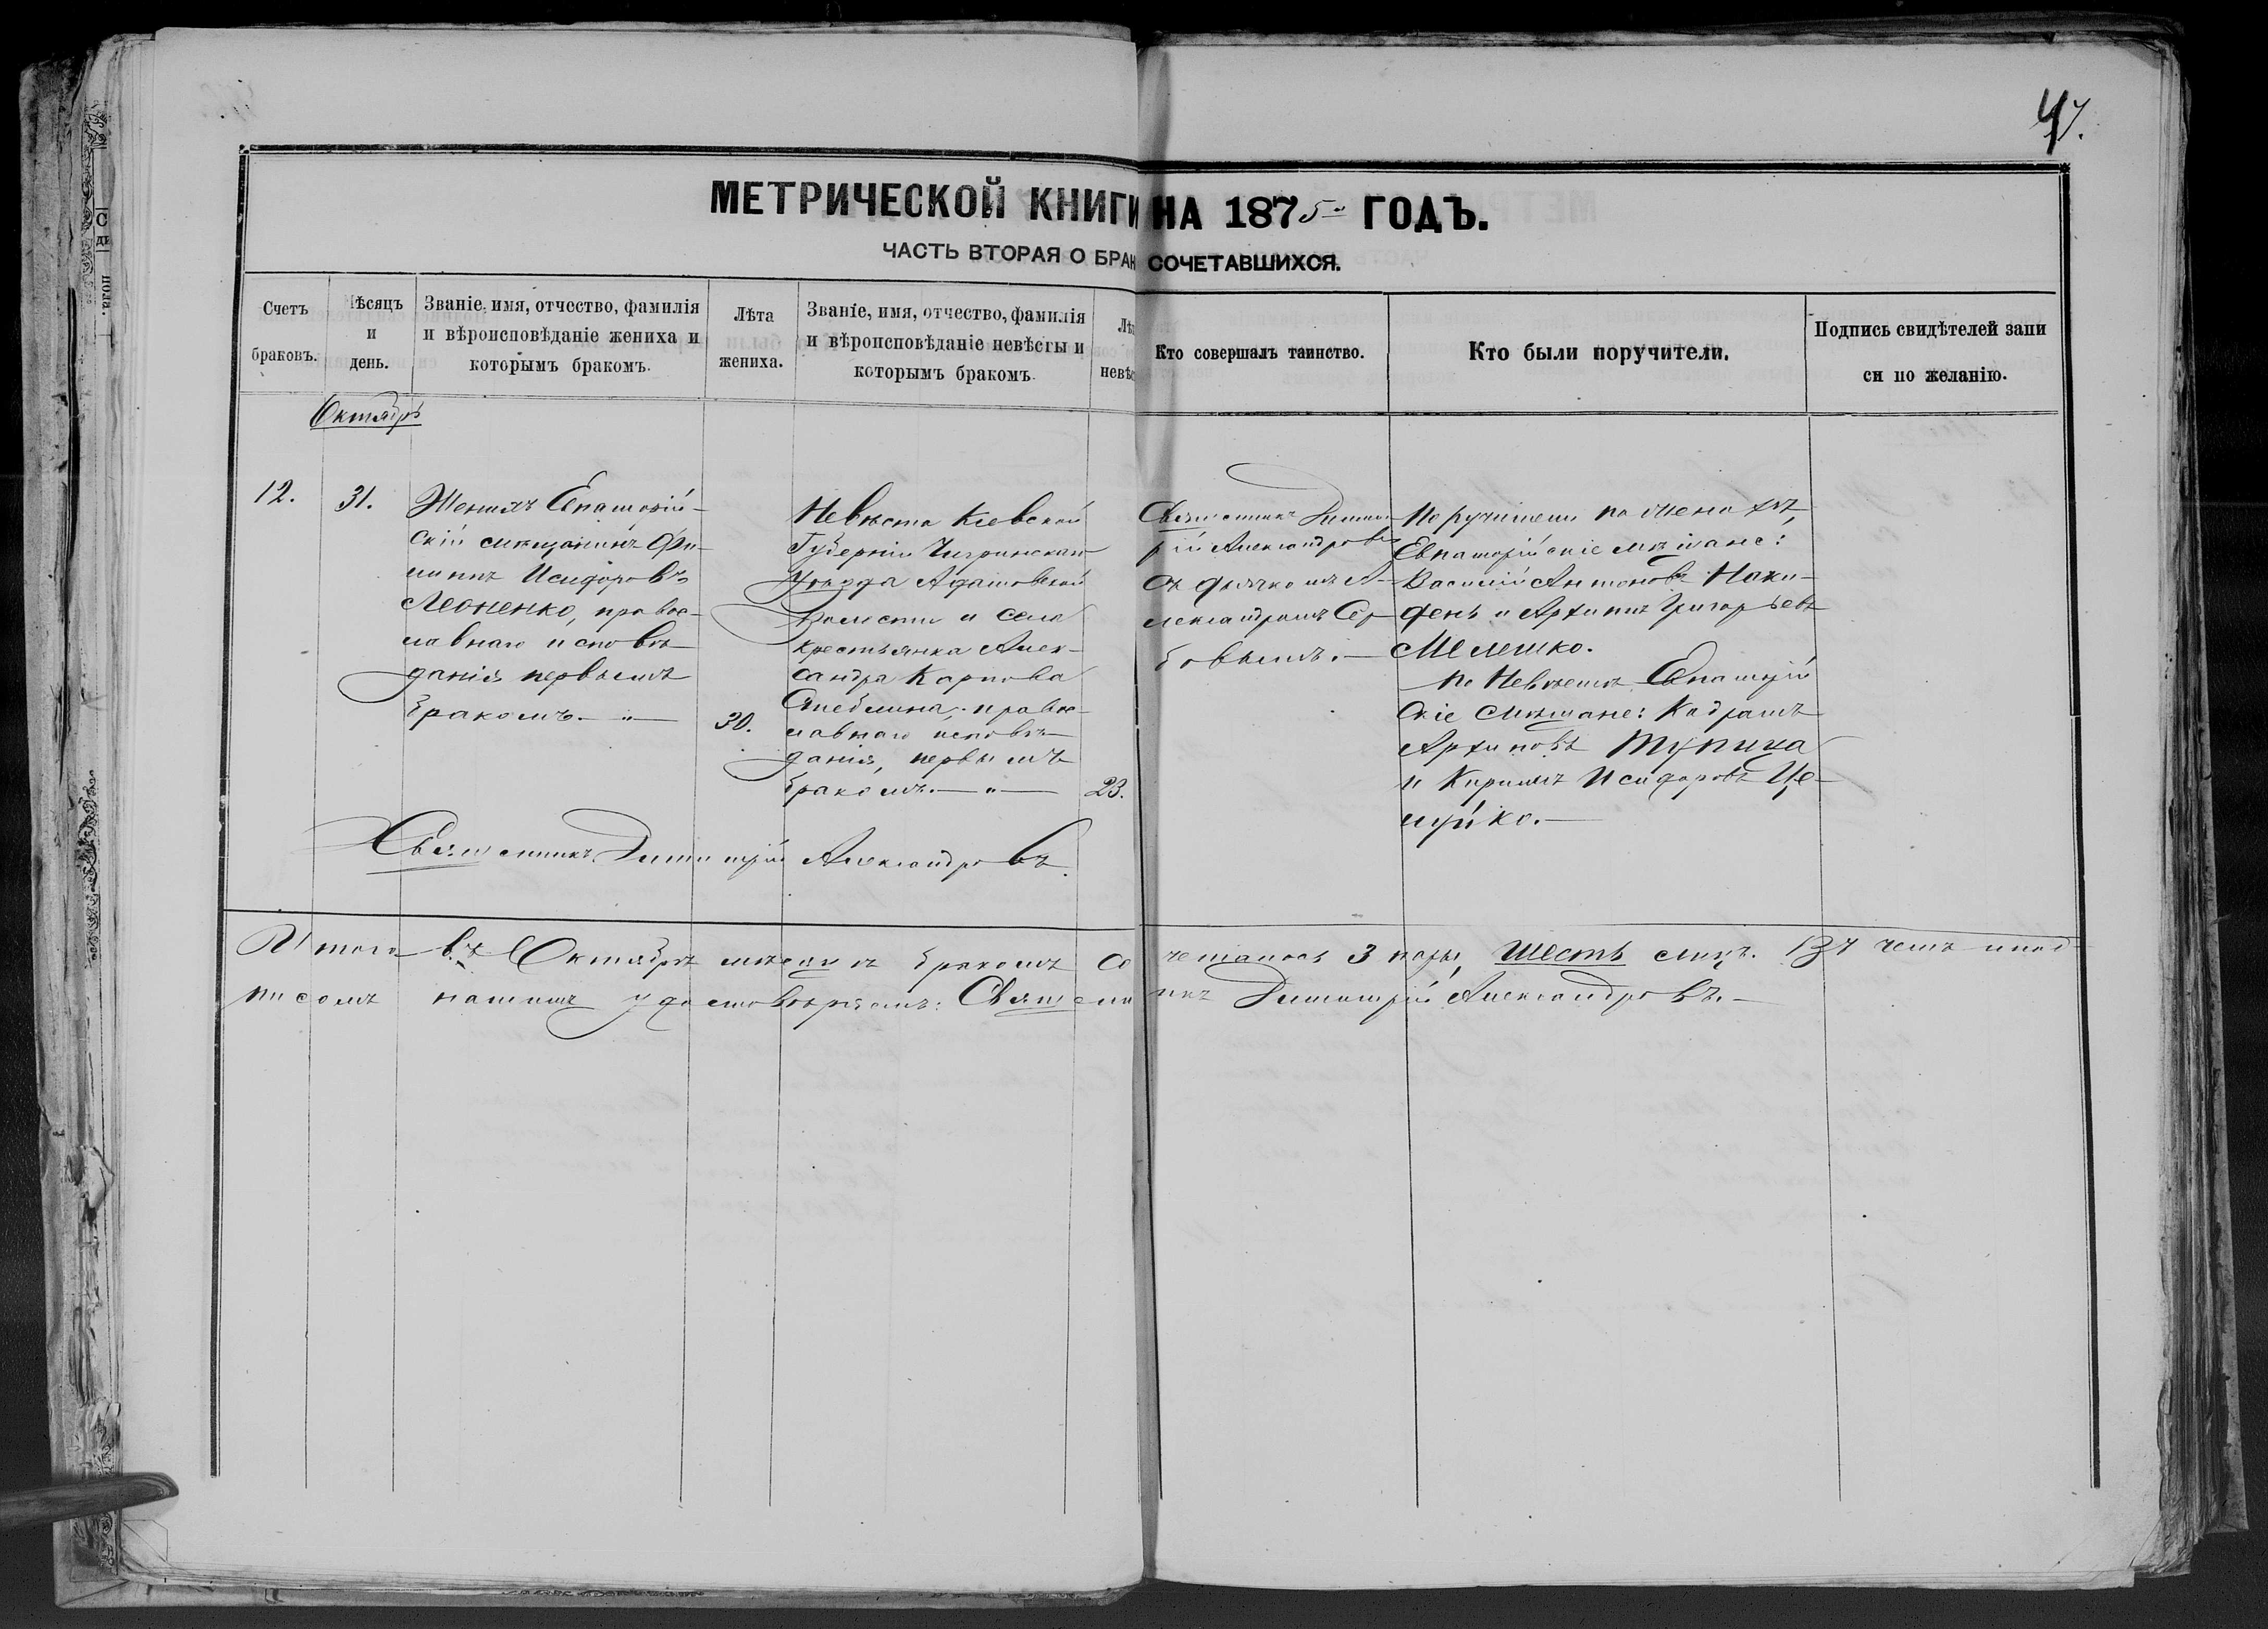 47.
МЕТРИЧЕСКОЙ КНИГИ НА 1875 ГОДЪ.
ЧАСТЬ ВТОРАЯ О БРАКОСОЧЕТАВШИХСЯ.
Счетъ
браковъ.
Мѣсяцъ
и
день.
Званіе, имя, отчество, фамилія
и вѣроисповѣданіе жениха и
которымъ бракомъ.
Лѣта
жениха.
Званіе, имя, отчество, фамилія
и вѣроисповѣданіе невѣсты и
которымъ бракомъ.
Лѣ
невѣс
Кто совершалъ таинство.
Кто были поручители.
Подпись свидѣтелей запи
си по желанію.
Октябрь
12.
31.
Женихъ Евпаторій-
скій мѣщанинъ Фи-
липпъ Исидоровъ
Леоненко, правос-
лавнаго исповѣ-
данія первымъ
бракомъ.
30.
Невѣста Кіевской
Губерніи Чигринскаго
Уѣзда
Волости и села
крестьянка Алек-
сандра Карпова
правос-
лавнаго исповѣ-
данія, первымъ
бракомъ.
23.
Священникъ Дими-
рій Александровъ
съ дьячкомъ А-
лександромъ Сер-
бовымъ.
Поручители по женихѣ,
Евпаторійскіе мѣщане:
Василій Антоновъ Нахи-
день и Архипъ Григорьевъ
Мелешко.
по Невѣстѣ Евпаторій
скіе мѣщане:
Архиповъ Тупика
и Кириллъ Исидоровъ
Священникъ Димитрій Александровъ.
Итого въ Октябрѣ мѣсяцѣ бракомъ сочеталось 3 пары, шесть лицъ. Въ чемъ и под
писомъ нашимъ удостовѣряемъ: Священникъ Димитрій Александровъ.